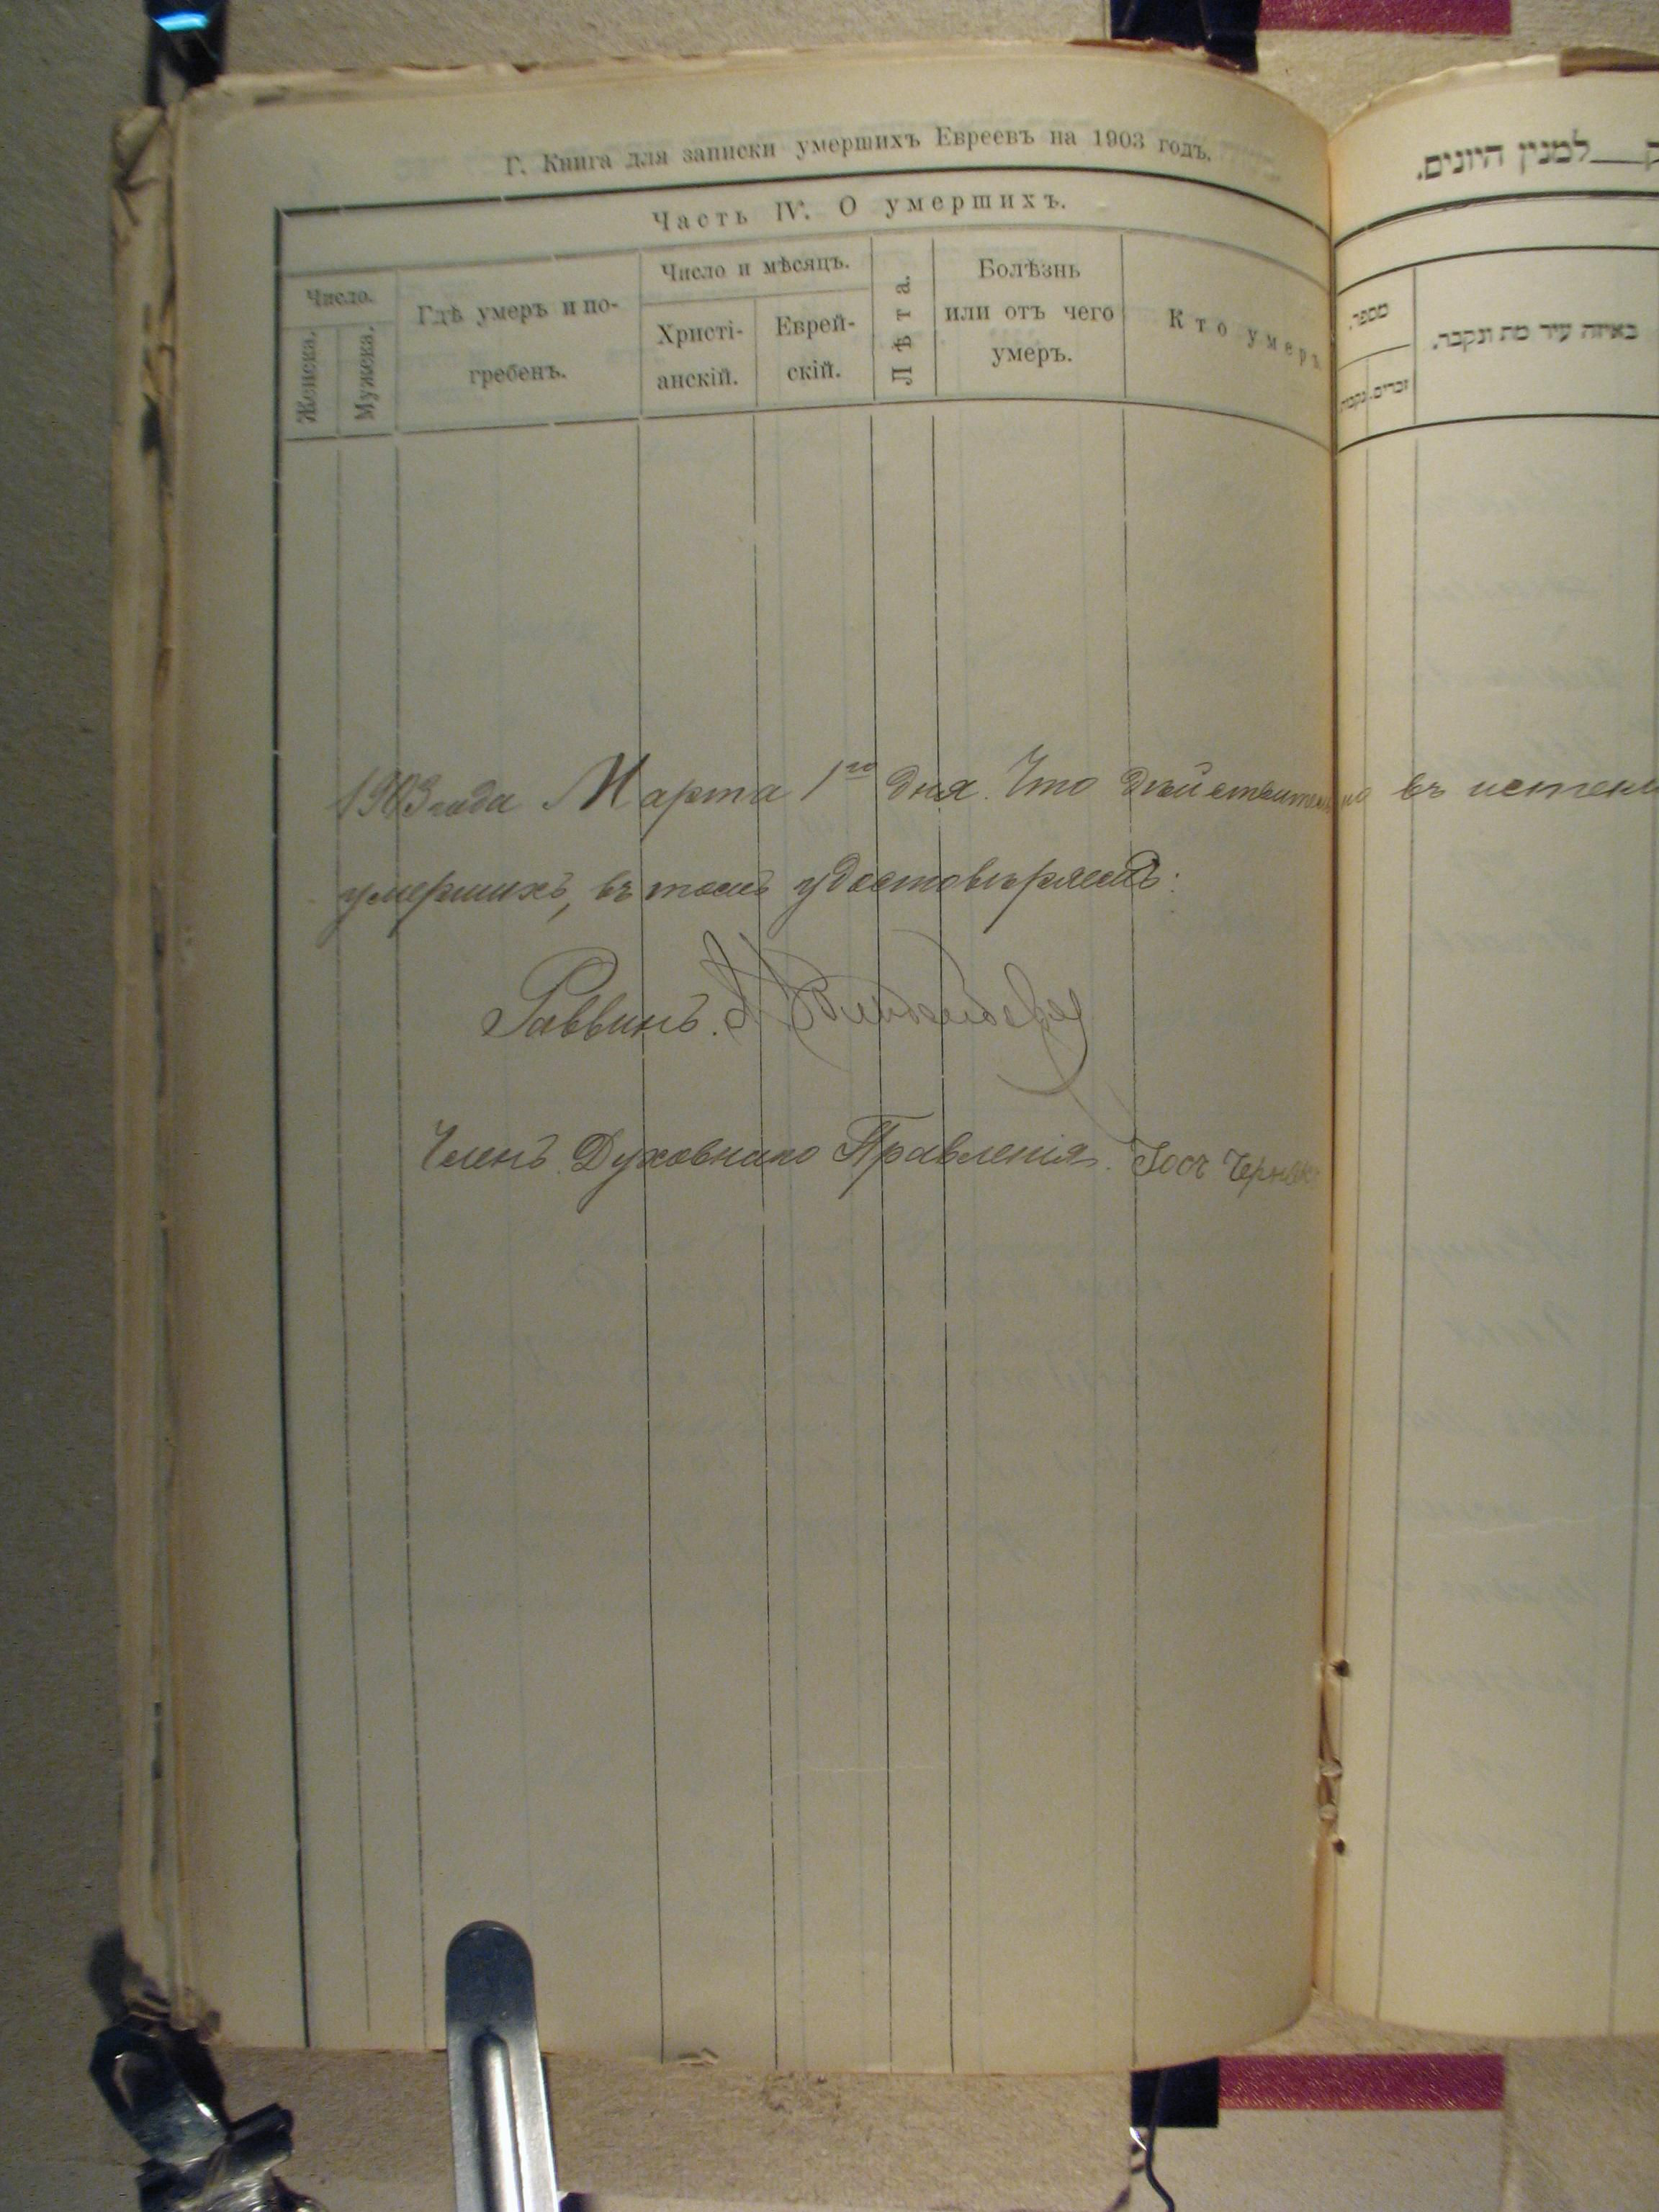 Г. Книга для записки умершихъ Евреевъ на 1903 годъ.
Часть IV. О умершихъ.
Число.
Женска.
Мужска.
Гдѣ умеръ и по-
гребенъ.
Число и мѣсяцъ.
Христі-
анскій.
Еврей-
скій.
Лѣта.
Болѣзнь
или отъ чего
умеръ.
Кто умеръ
למנין היונים.
מספר.
זכרים.
באיזה עיר מת ונקבר.
1903 года Марта 1го дня. Что дѣйствительно въ
умершихъ, въ томъ удостовѣряемъ:
Раввинъ.
Членъ Духовнаго Правленія.